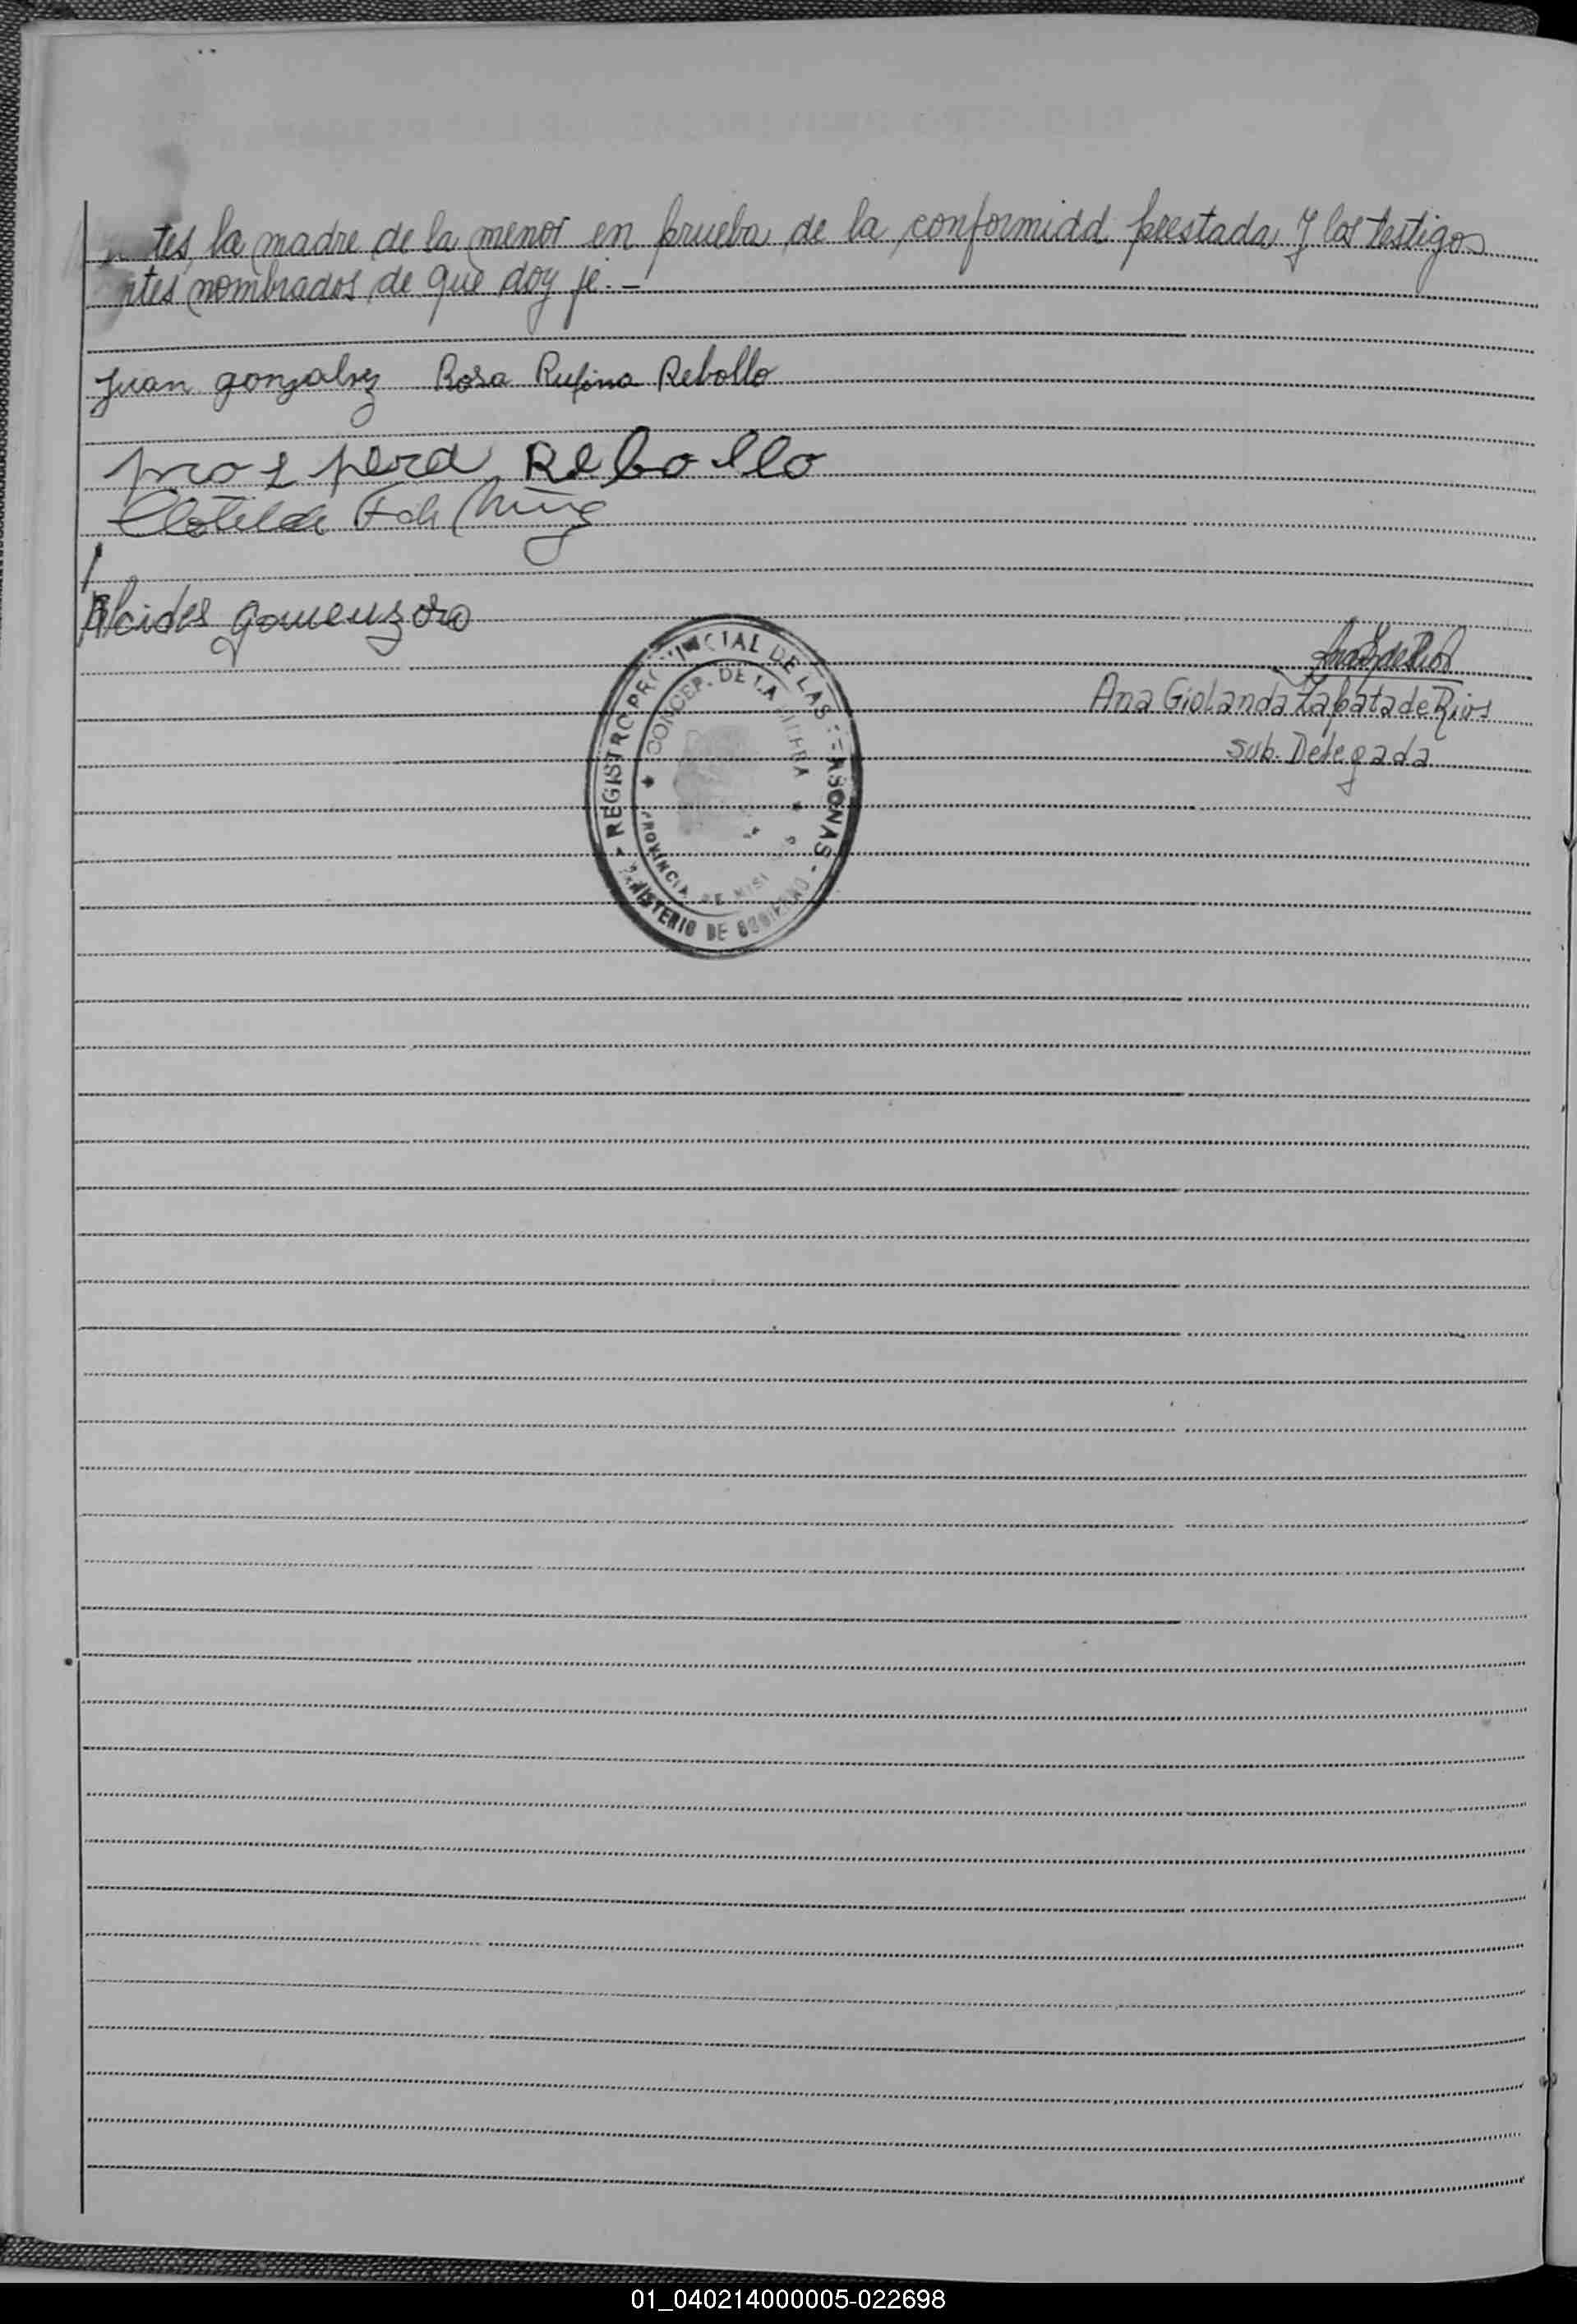 tes, la madre de la menor en prueba de la conformidd prestada y los testigos
ntes nombrados de que doy fé.-
Juan gonzalvez Rosa Rufina Rebollo
prospera Rebollo
Clotilde F de
Alcides gomenzoro
Ana Giolanda Zapata de Rios
Sub. Delegada
REGISTRO PROVINCIAL DE LAS PERSONAS -
MINISTERIO DE GOBIERNO
CONCEP. DE LA SIERRA
PROVINCIA DE MISIONES
01_040214000005-022698